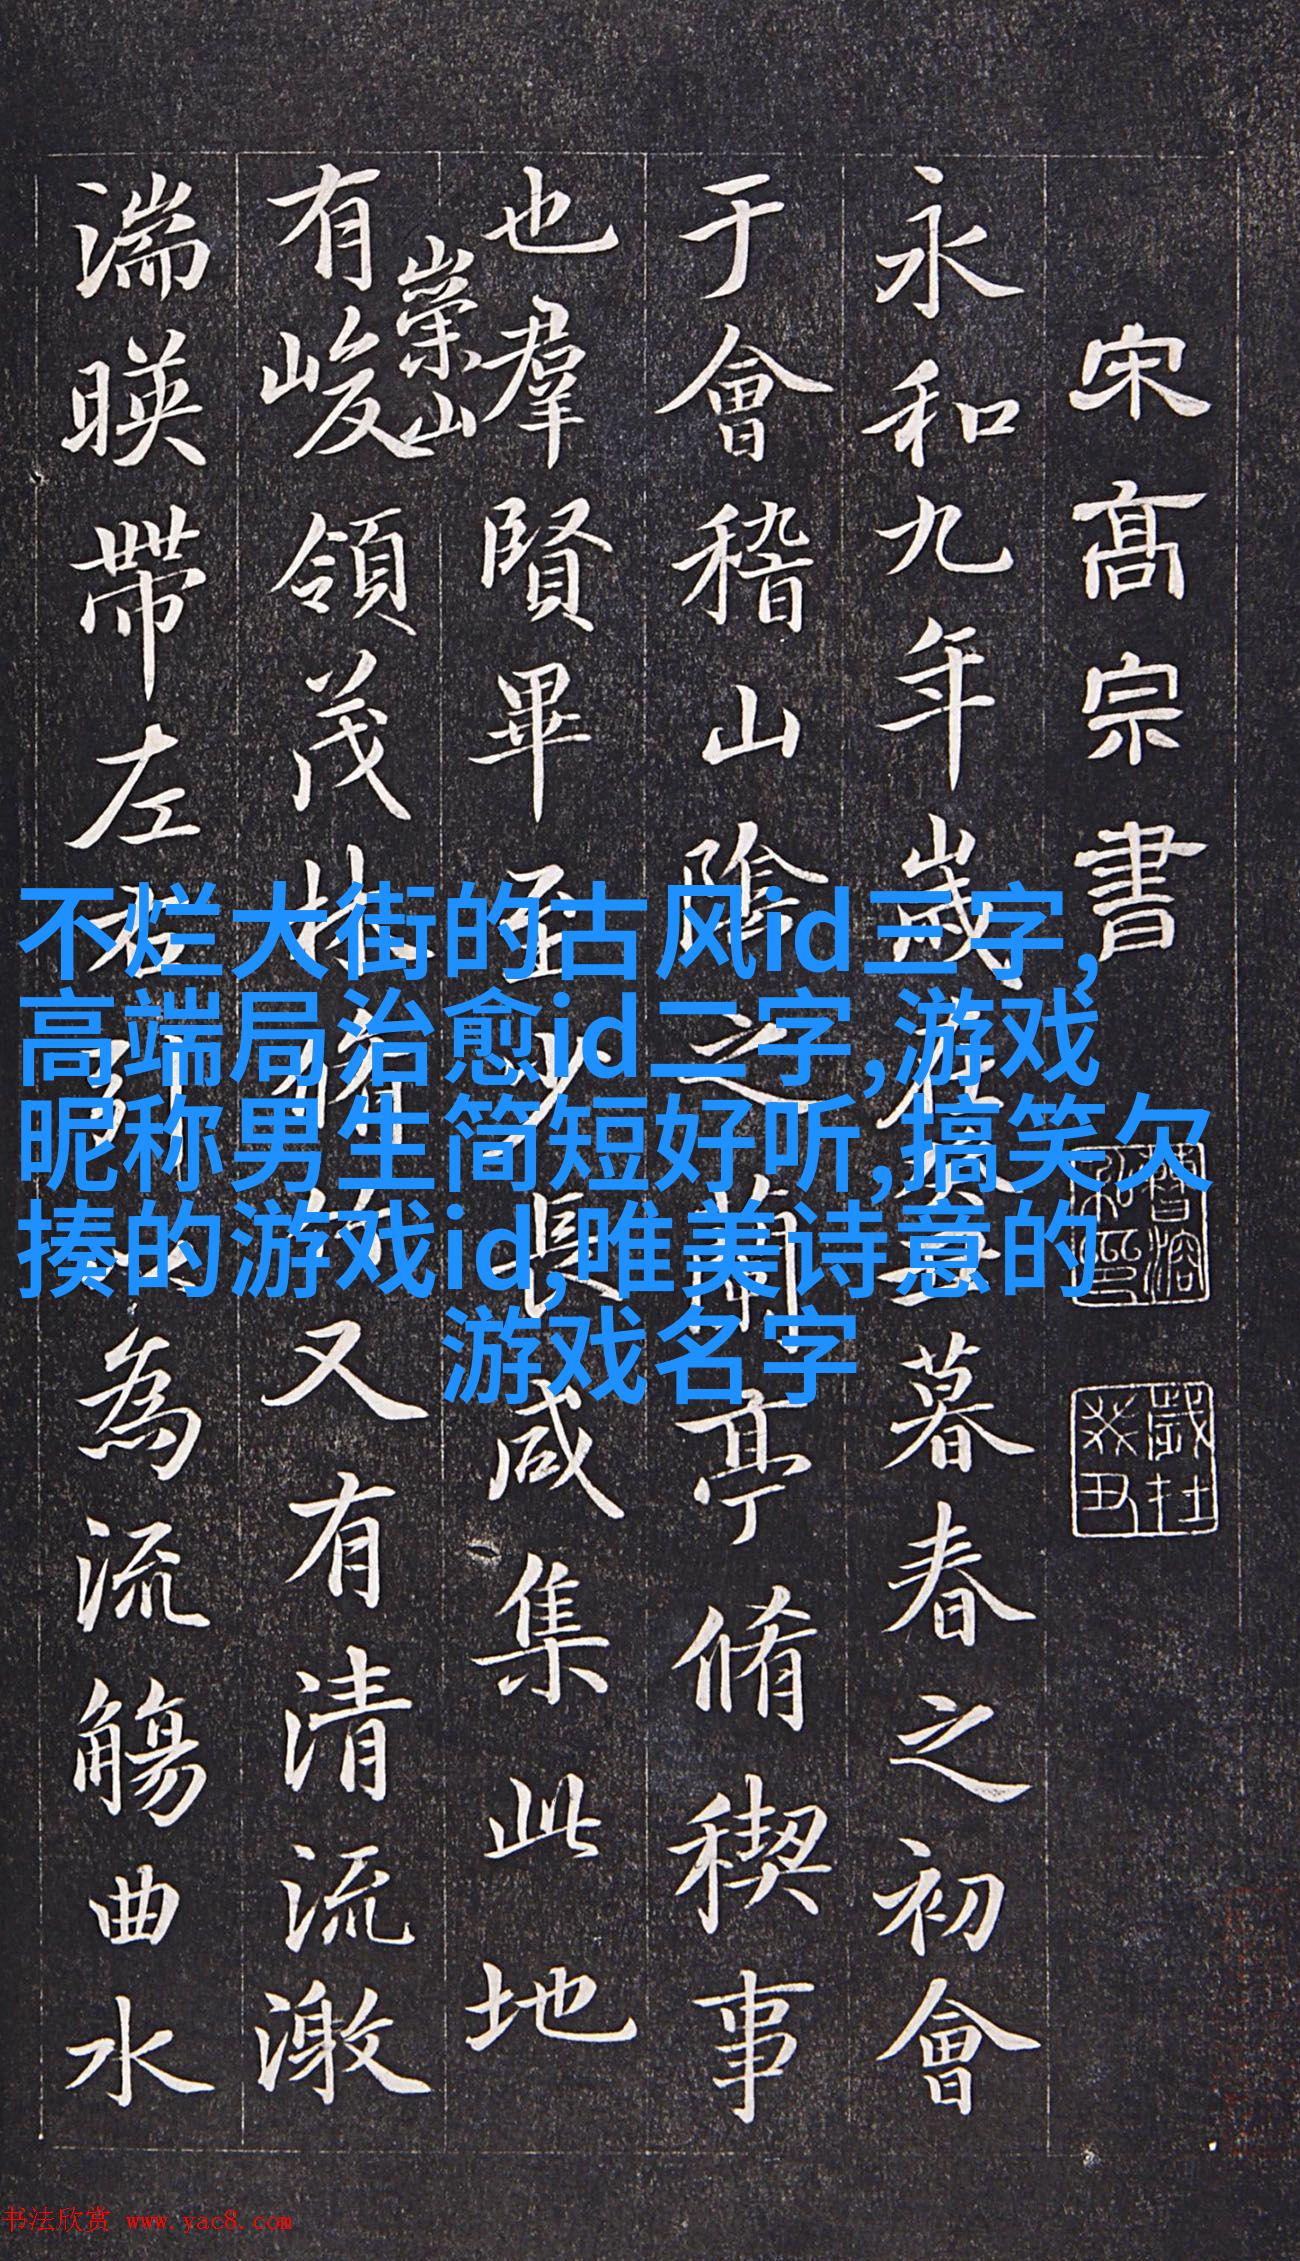 宋高宗書
永和九年歲在癸丑暮春之初會
于會稽山陰之蘭亭脩稧事
也羣賢畢至少長咸集此地
有崇山峻領茂林脩竹又有清流激
湍暎帶左右引以為流觴曲水
不烂大街的古风id三字,
高端局治愈id二字,游戏
昵称男生简短好听,搞笑欠
揍的游戏id,唯美诗意的
游戏名字
书法欣赏 www.yac8.com